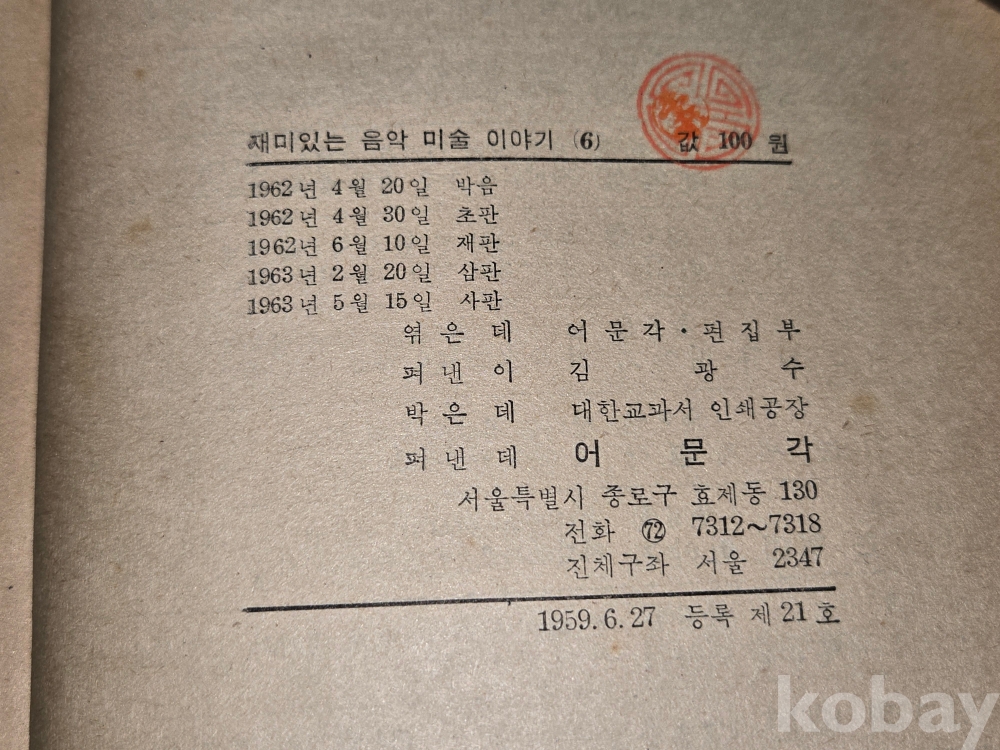 재미있는 음악 미술 이야기 (6) 값 100 원
1962년 4월 20일 박음
1962년 4월 30일 초판
1962년 6월 10일 재판
1963년 2월 20일 삼판
1963년 5월 15일 사판
엮은데 어문각·편집부
펴낸이 김광수
박은데 대한교과서 인쇄공장
펴낸데 어문각
서울특별시 종로구 효제동 130
전화 ㉒ 7312～7318
진체구좌 서울 2347
1959.6.27 등록 제21호
kobay